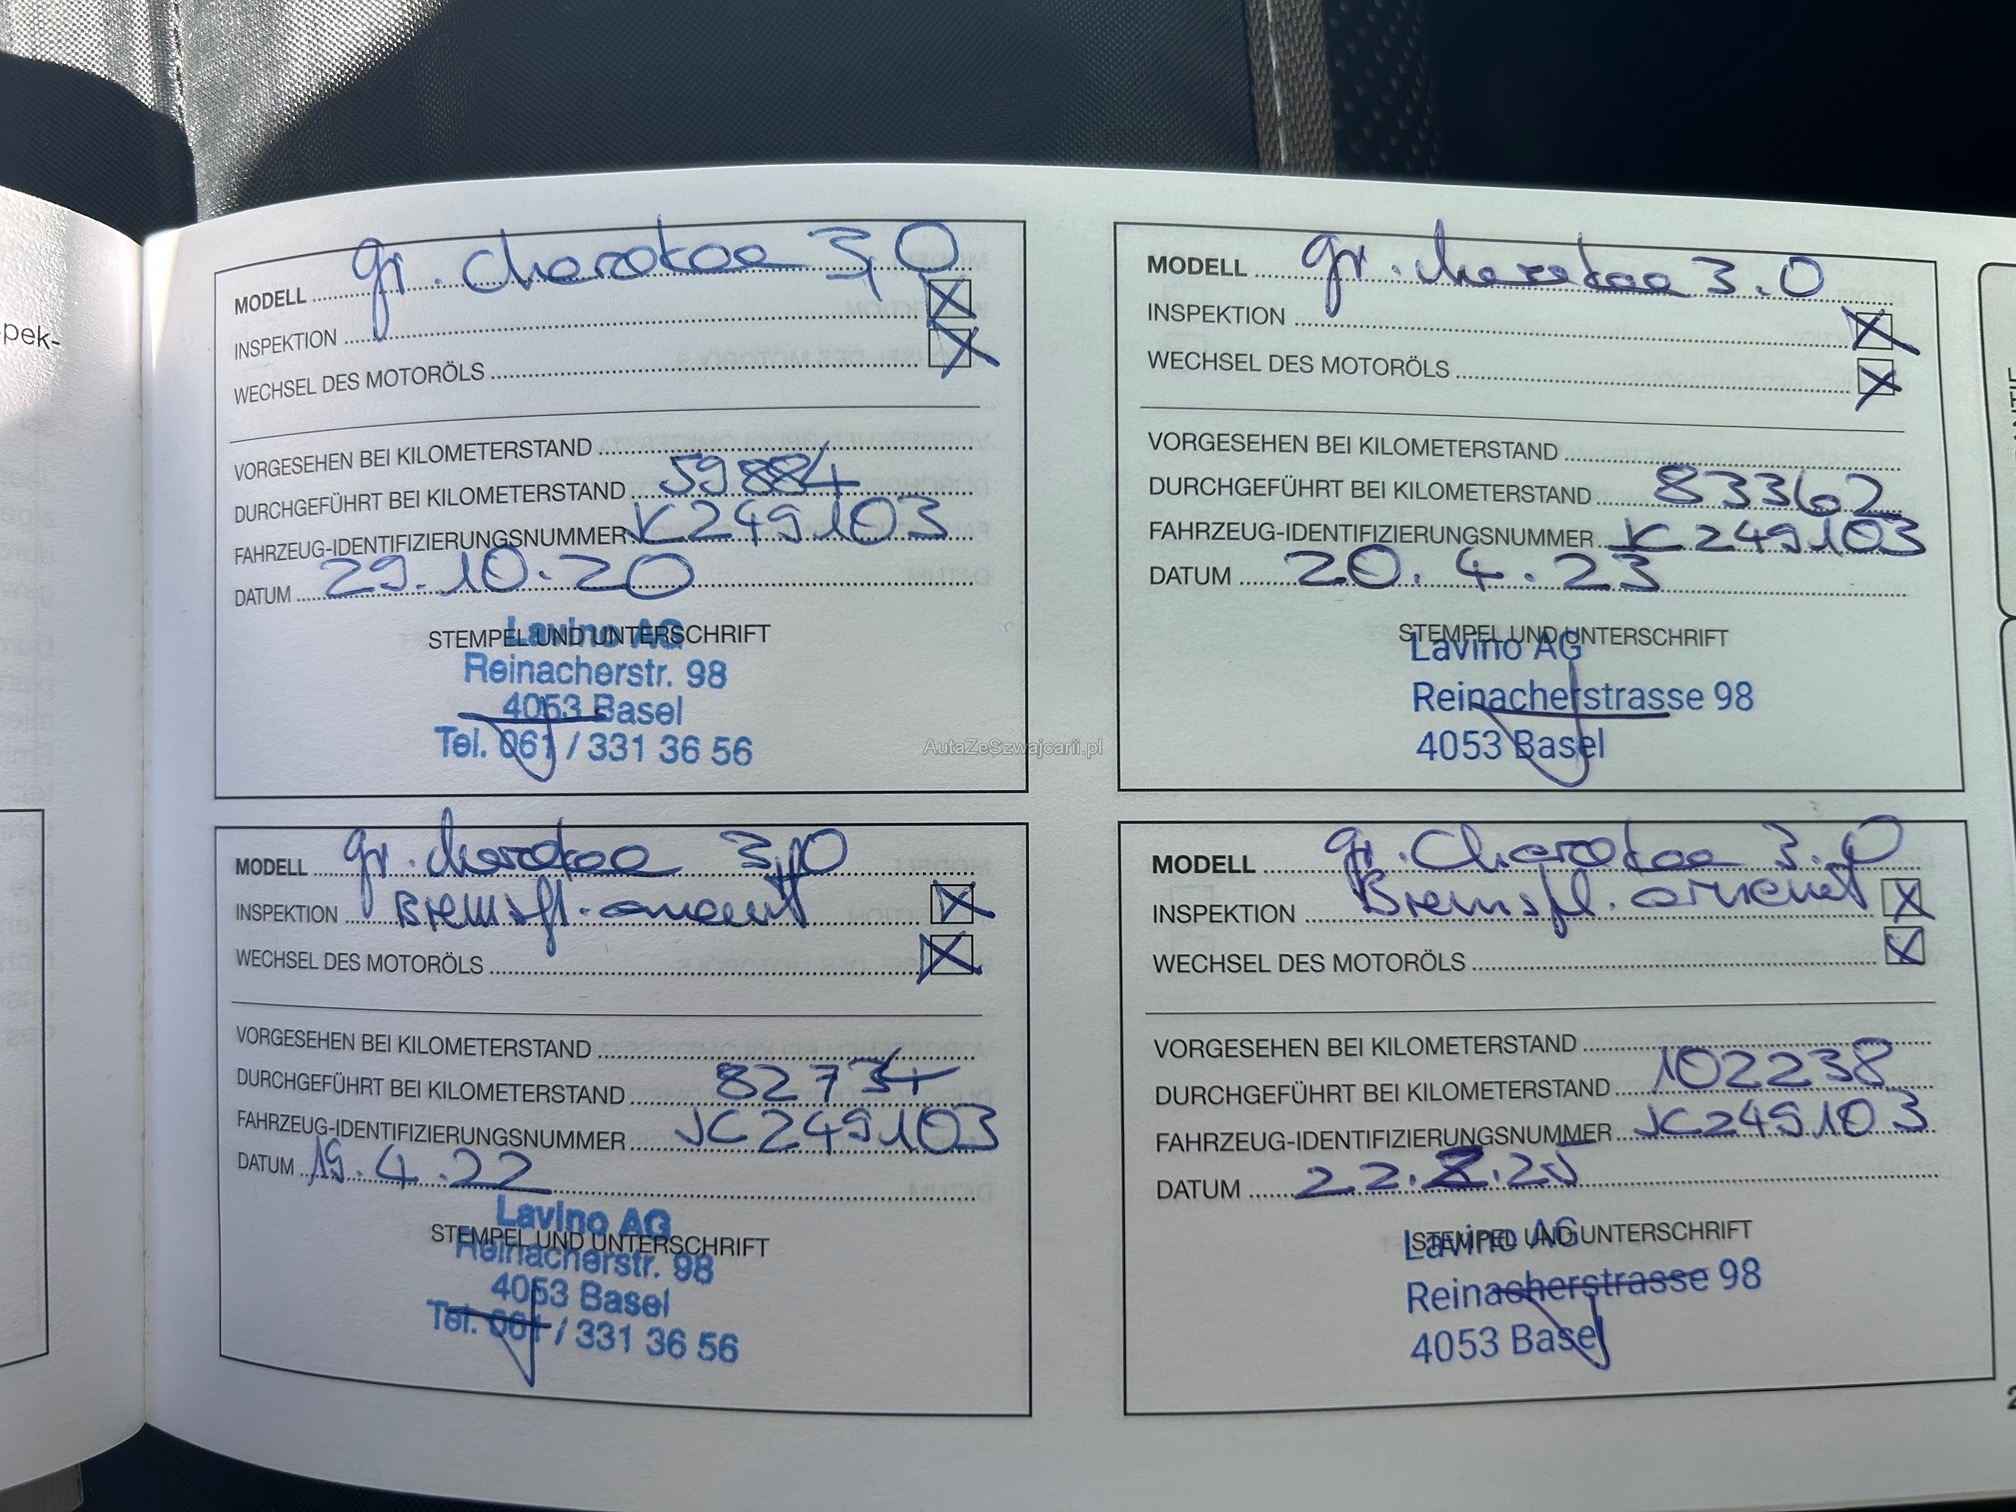 pek-
MODELL gr. cherokee 3,0
INSPEKTION
WECHSEL DES MOTORÖLS
VORGESEHEN BEI KILOMETERSTAND
DURCHGEFÜHRT BEI KILOMETERSTAND 59884
FAHRZEUG-IDENTIFIZIERUNGSNUMMER K249103
DATUM 29.10.20
STEMPEL UND UNTERSCHRIFT
Lavino AG
Reinacherstr. 98
4053 Basel
Tel. 061 / 331 36 56
MODELL gr. cherokee 3.0
INSPEKTION
WECHSEL DES MOTORÖLS
VORGESEHEN BEI KILOMETERSTAND
DURCHGEFÜHRT BEI KILOMETERSTAND 83362
FAHRZEUG-IDENTIFIZIERUNGSNUMMER K249103
DATUM 20.4.23
STEMPEL UND UNTERSCHRIFT
Lavino AG
Reinacherstrasse 98
4053 Basel
AutaZeSzwajcarii.pl
MODELL gr. cherokee 3,0
INSPEKTION Bremsfl. erneuert
WECHSEL DES MOTORÖLS
VORGESEHEN BEI KILOMETERSTAND
DURCHGEFÜHRT BEI KILOMETERSTAND 82734
FAHRZEUG-IDENTIFIZIERUNGSNUMMER K249103
DATUM 19.4.22
STEMPEL UND UNTERSCHRIFT
Lavino AG
Reinacherstr. 98
4053 Basel
Tel. 061 / 331 36 56
MODELL gr. Cherokee 3.0
INSPEKTION Bremsfl. erneuert
WECHSEL DES MOTORÖLS
VORGESEHEN BEI KILOMETERSTAND
DURCHGEFÜHRT BEI KILOMETERSTAND 102238
FAHRZEUG-IDENTIFIZIERUNGSNUMMER K249103
DATUM 22.2.25
STEMPEL UND UNTERSCHRIFT
Lavino AG
Reinacherstrasse 98
4053 Basel